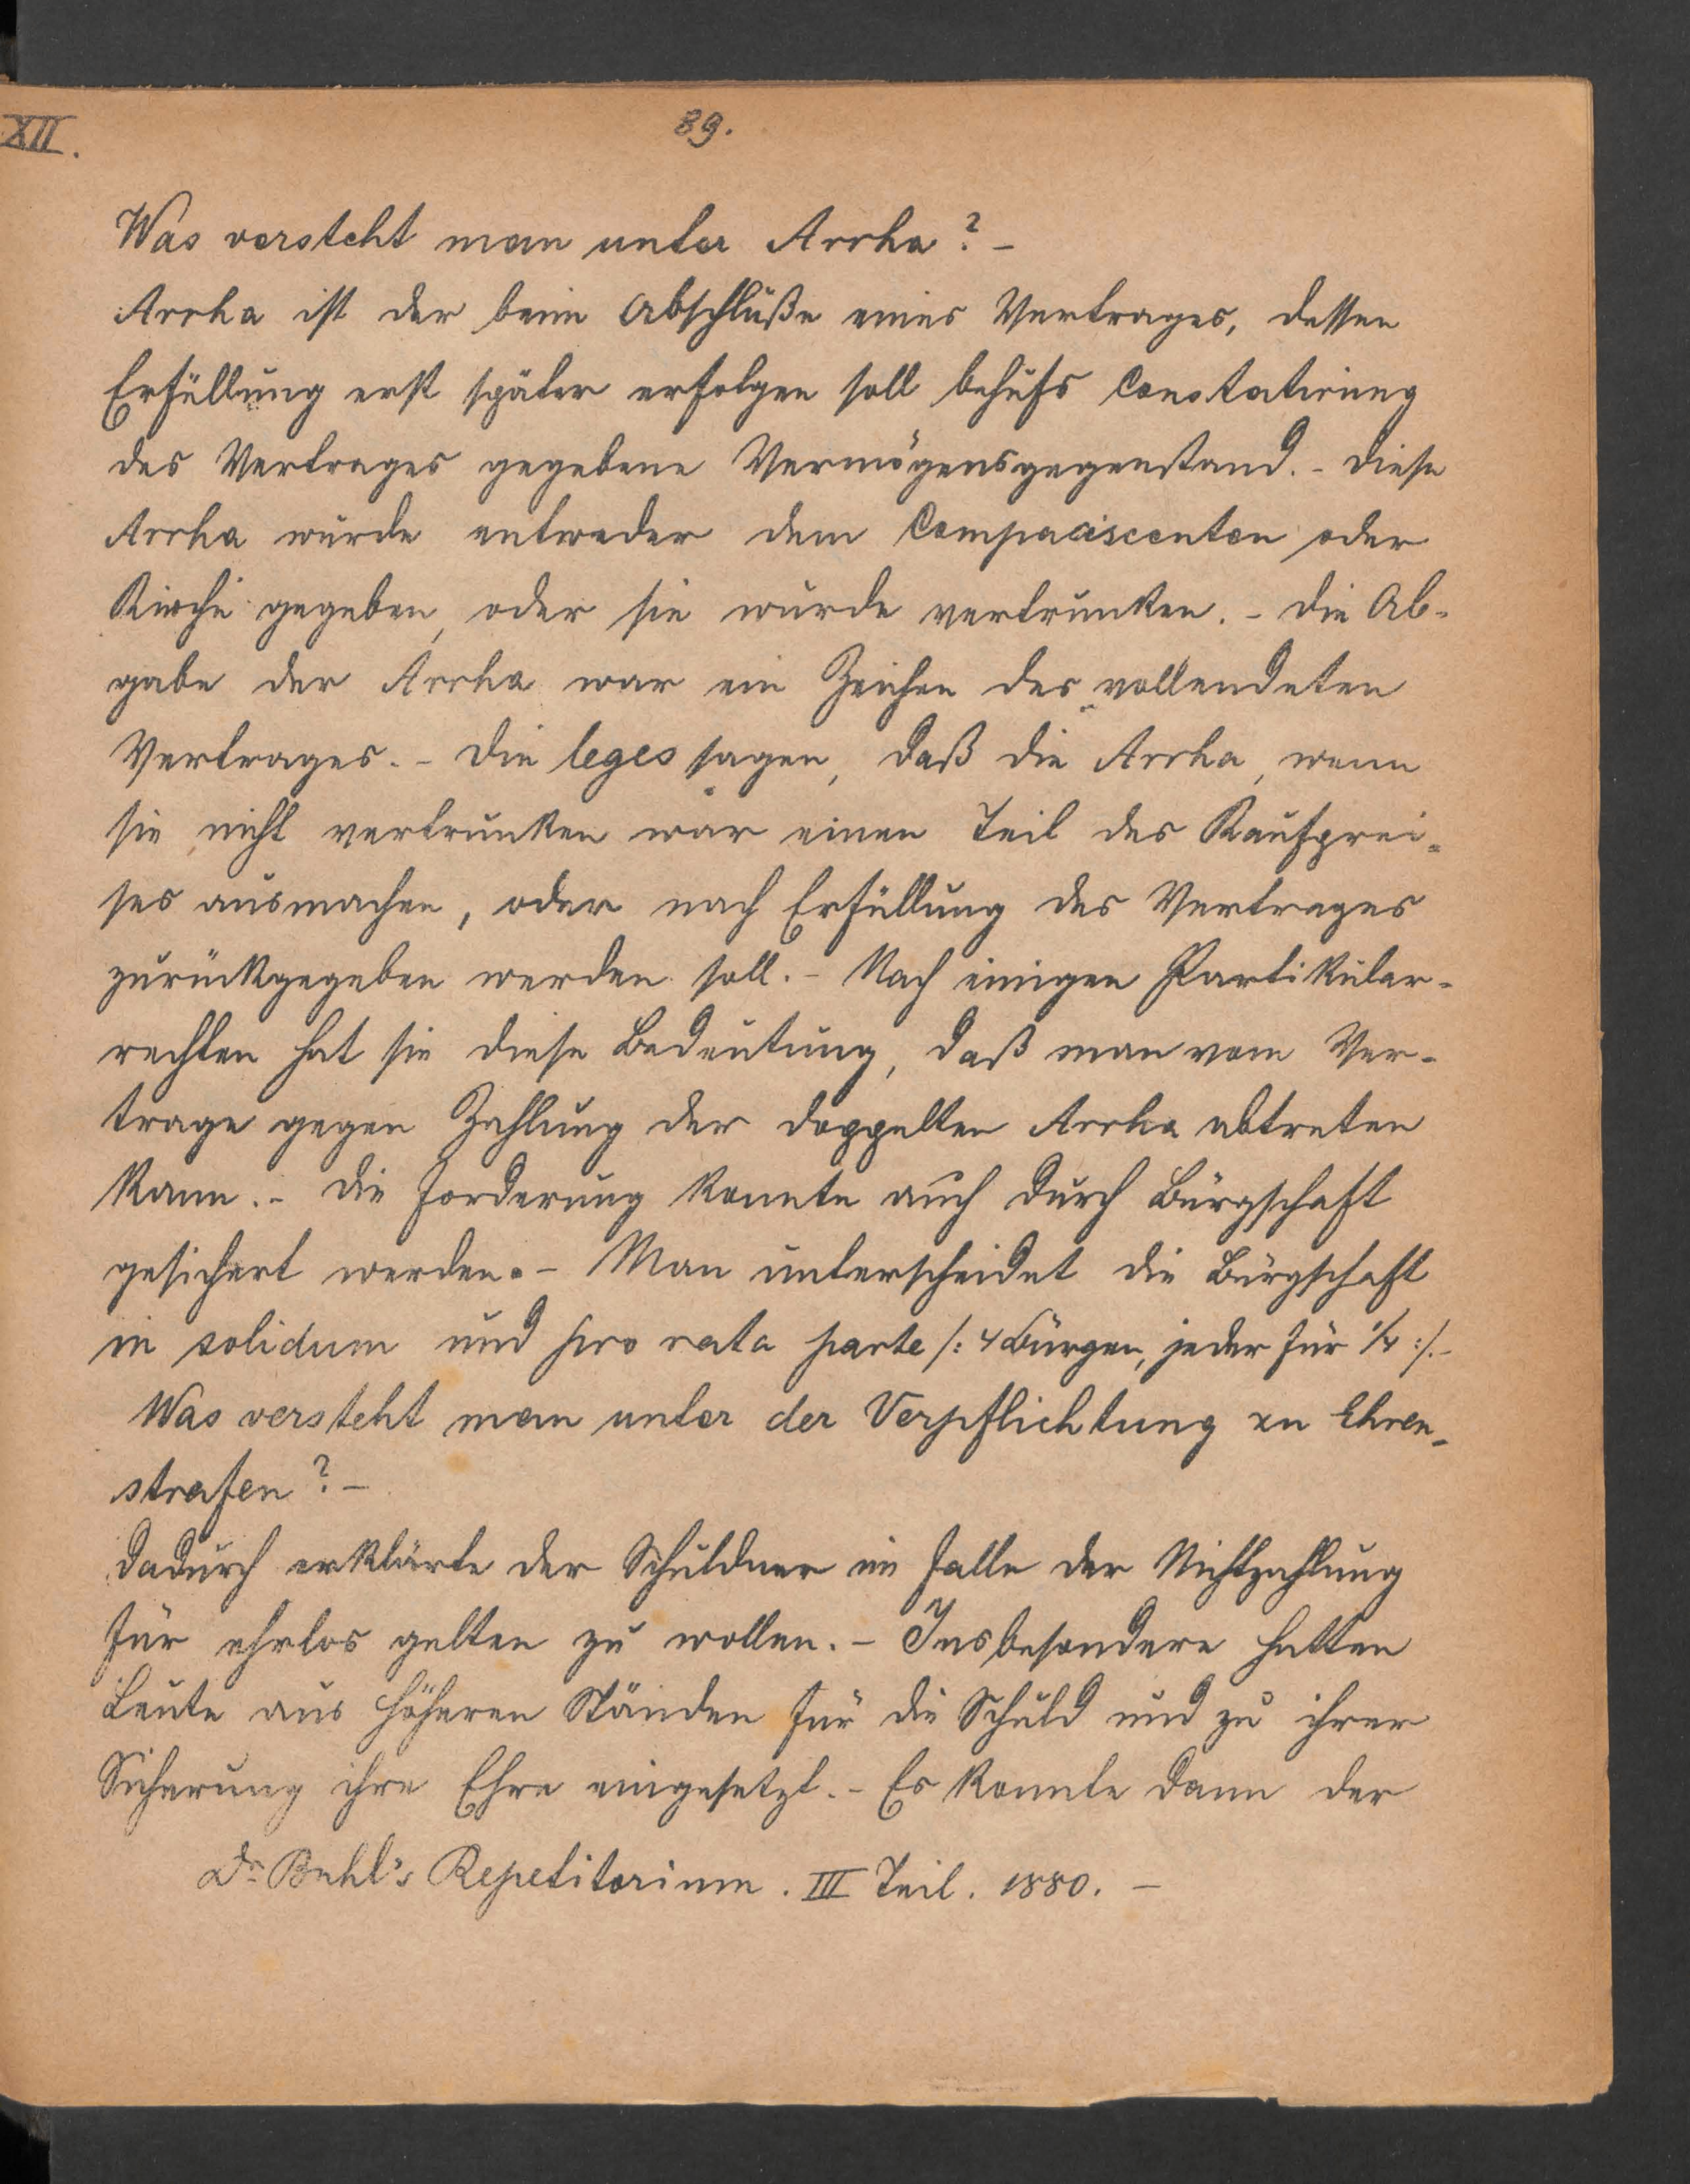 XII.
89.
Was versteht man unter Arrha? –
Arrha ist der beim Abschluße eines Vertrages, dessen
Erfüllung erst später erfolgen soll behufs Constatirung
des Vertrages gegebene Vermögensgegenstand. – Diese
Arrha wurde entweder dem Compaciscenten oder
Kirche gegeben, oder sie wurde vertrunken. – Die Ab-
gabe der Arrha war ein Zeichen des vollendeten
Vertrages. – Die leges sagen, daß die Arrha, wenn
sie nicht vertrunken war einen Teil des Kaufprei-
ses ausmachen, oder nach Erfüllung des Vertrages
zurückgegeben werden soll. – Nach einigen Partikular-
rechten hat sie diese Bedeutung, daß man vom Ver-
trage gegen Zahlung der doppelten Arrha abtreten
kann. – Die Forderung konnte auch durch Bürgschaft
gesichert werden. – Man unterscheidet die Bürgschaft
in solidum und pro rata parte /: 4 Bürgen, jeder für 1/4 :/. –
Was versteht man unter der Verpflichtung zu Ehren-
strafen? –
Dadurch erklärte der Schuldner im Falle der Nichtzahlung
für ehrlos gelten zu wollen. – Insbesondere hatten
Leute aus höheren Ständen für die Schuld und zu ihrer
Sicherung ihre Ehre eingesetzt. – Es konnte dann der
Dr Buhl's Repetitorium. III Teil. 1880. –